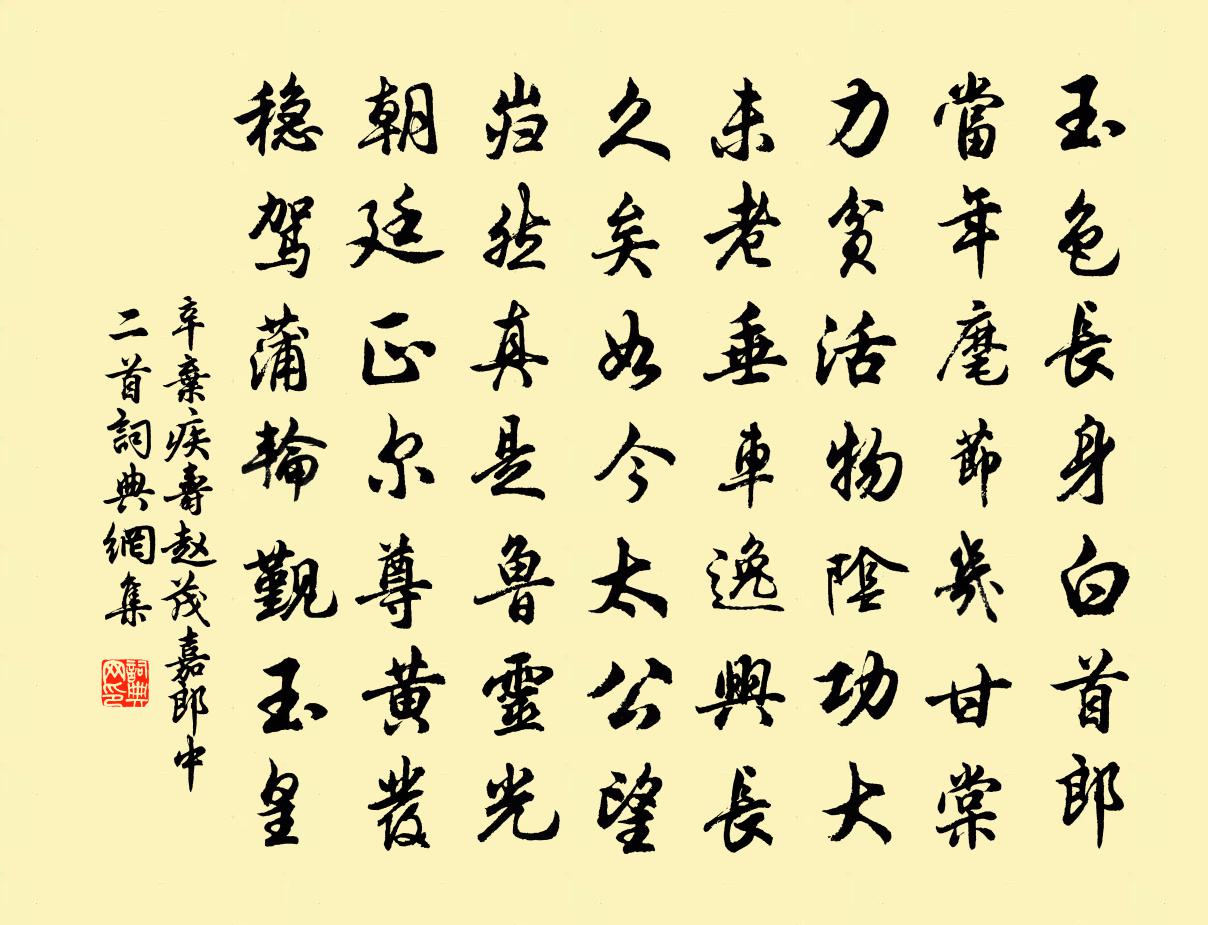 玉色長身白首郎
當年麾節幾甘棠
力貧活物陰功大
未老垂車逸興長
久矣如今太公望
岿然真是魯靈光
朝廷正尔尊黄發
稳駕蒲輪觐玉皇
辛棄疾壽趙茂嘉郎中
二首詞典網集
詞典网印